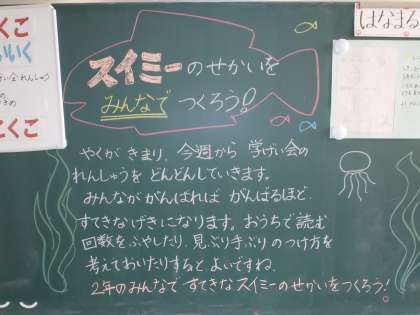 はなまる
くこ
いく
スイミーのせかいを
みんなで つくろう!
やくが きまり、今週から 学げい会の
れんしゅうを どんどんしていきます。
みんなが がんばれば がんばるほど、
すてきなげきになります。おうちで読む
回数をふやしたり、見ぶり手ぶりのつけ方を
考えておいたりすると、よいですね。
2年のみんなで すてきな スイミーのせかいをつくろう!
くこ